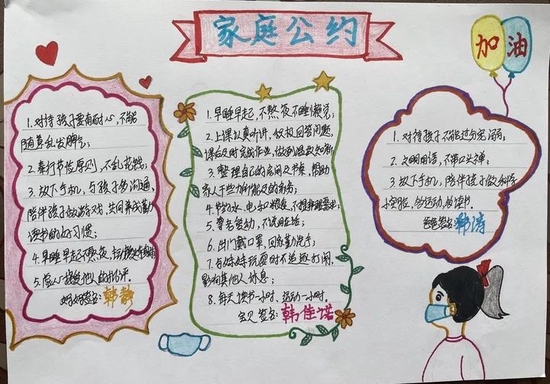 家庭公约
加油
1.对待孩子要有耐心,不能
随意乱发脾气;
2.奉行节俭原则,不乱花钱;
3.放下手机,与孩子多沟通,
陪伴孩子做游戏,共同养成勤
读书的好习惯;
4.早睡早起不熬夜,
5.虚心接受他人的批评。
妈妈签名:韩静
1.早睡早起,不熬夜不睡懒觉;
2.上课认真听讲,积极回答问题,
课后及时完成作业,做到温故知新;
3.整理自己的房间及书桌,帮助
家人干些力所能及的家务;
4.节约水、电和粮食,不挑食
5.尊老爱幼,不说脏话;
6.出门戴口罩,回家勤洗手;
7.与妹妹玩耍时不追逐打闹,
影响其他人休息;
8.每天读书一小时,运动一小时。
宝贝签名:韩佳诺
1.对待孩子不能过分宠溺;
2.文明用语,不带口头禅;
3.放下手机,陪伴孩子做
多运动,多读书。
爸爸签名:韩涛